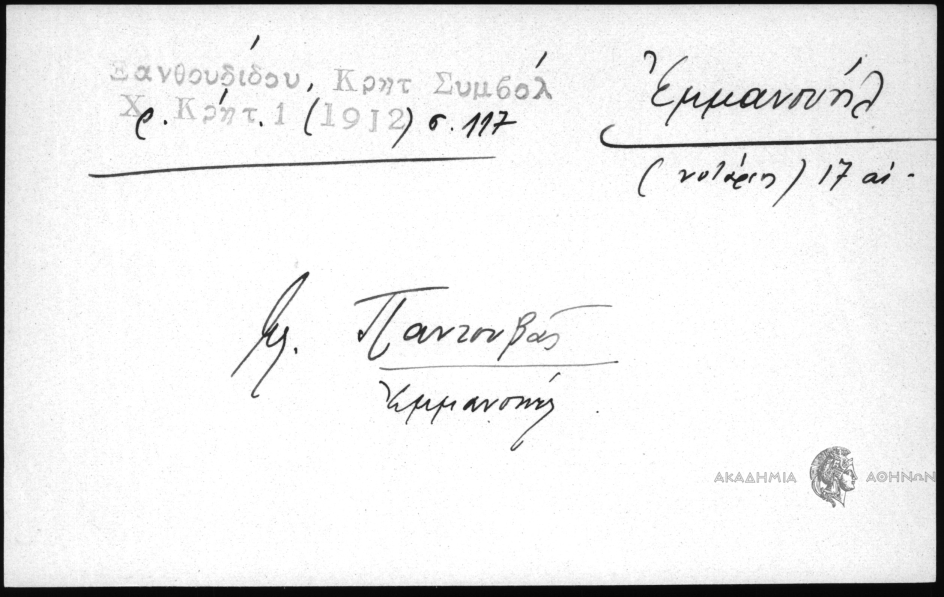 Ξανθουδίδου, Κρητ Συμβόλ
Χρ. Κρήτ. 1 (1912) σ. 117
Ἐμμανουήλ
(νοτάριος) 17 αἰ.
Βλ. Παντουβᾶς
Ἐμμανουήλ.
ΑΚΑΔΗΜΙΑ ΑΘΗΝΩΝ